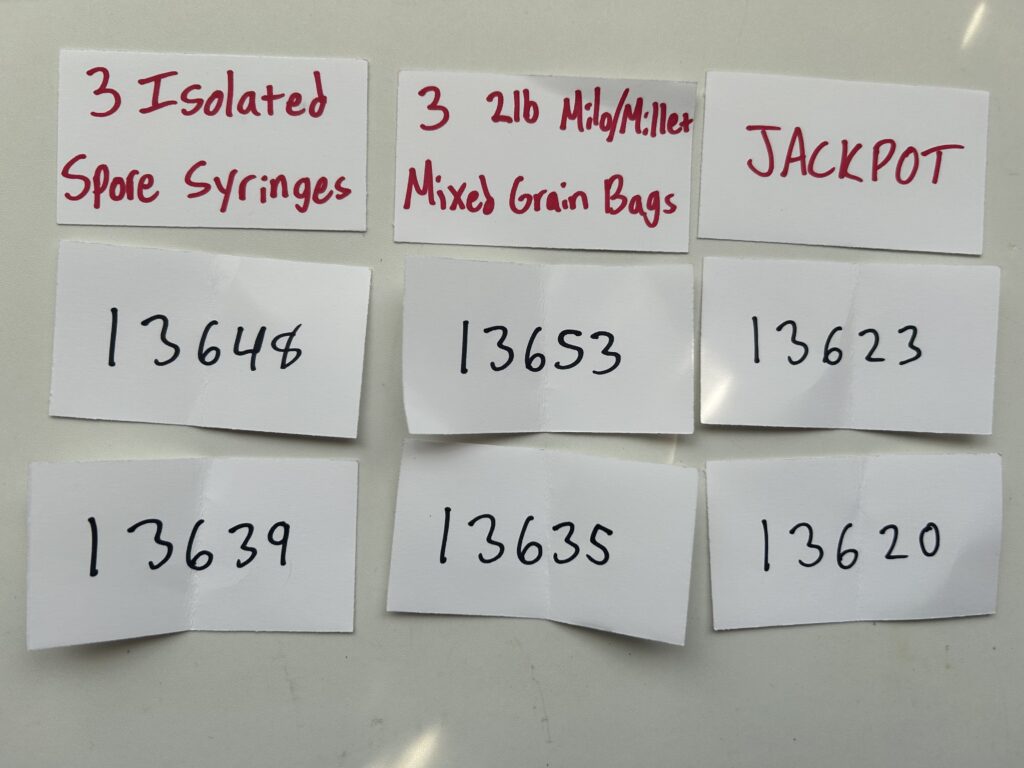 3 Isolated
Spore Syringes
3 2lb Milo/Millet
Mixed Grain Bags
JACKPOT
13648
13653
13623
13639
13635
13620